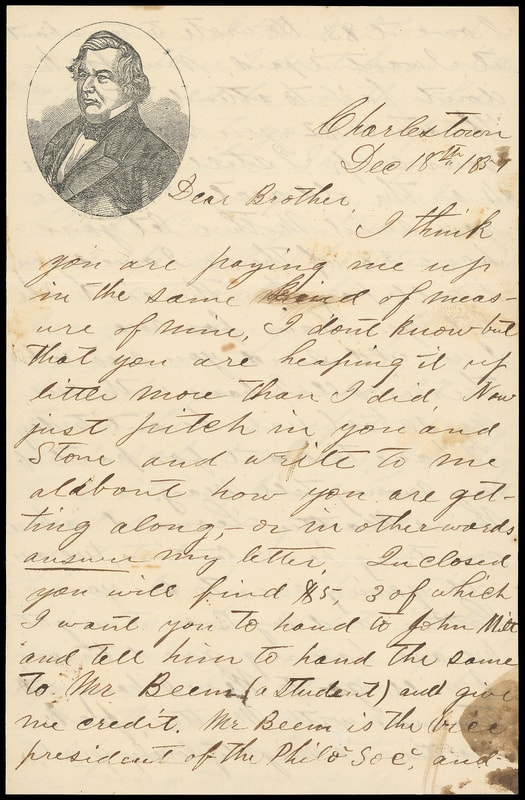 Charlestown
Dec 18th 185
Dear Brother,
I think
you are paying me up
in the same kind of meas-
ure of mine, I dont know but
that you are heaping it up
little more than I did, Now
just pitch in you and
Stone and write to me
aldbout how you are get-
ting along,- or in other words
answer my letter. Inclosed
you will find $5, 3 of which
I want you to hand to John Mitt
and tell him to hand the same
to Mr Beem (a student) and give
me credit. Mr Beem is the vice
president of the Philo Soc, and